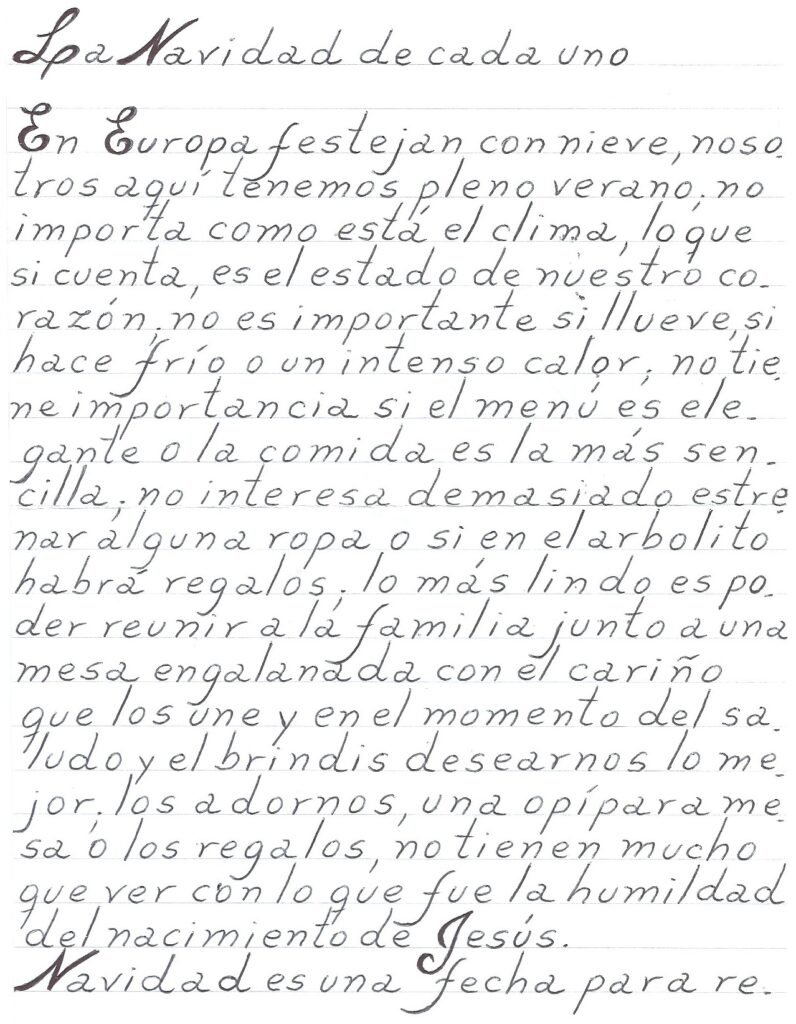 La Navidad de cada uno
En Europa festejan con nieve, noso-
tros aquí tenemos pleno verano; no
importa como está el clima, lo que
si cuenta, es el estado de nuestro co-
razón; no es importante si llueve, si
hace frío o un intenso calor; no tie-
ne importancia si el menú es ele-
gante o la comida es la más sen-
cilla; no interesa demasiado estre
nar alguna ropa o si en el arbolito
habrá regalos; lo más lindo es po-
der reunir a la familia junto a una
mesa engalanada con el cariño
que los une y en el momento del sa-
ludo y el brindis desearnos lo me-
jor; los adornos, una opípara me-
sa o los regalos, no tienen mucho
que ver con lo que fue la humildad
del nacimiento de Jesús.
Navidad es una fecha para re-